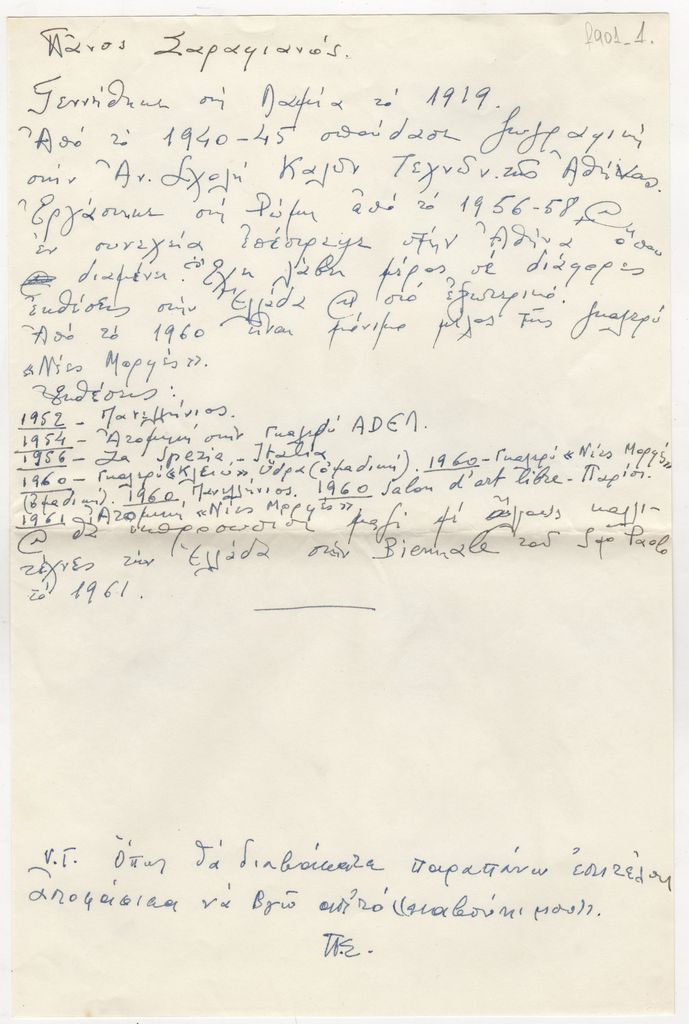 f901-1.
Πάνος Σαραφιανός.
Γεννήθηκε στή Λαμία τό 1919.
Ἀπό τό 1940-45 σπούδασε ζωγραφική
στήν Ἀν. Σχολή Καλῶν Τεχνῶν τῆς Ἀθήνας.
Ἐργάστηκε στή Ρώμη ἀπό τό 1956-58 καί
ἐν συνεχεία ἐπέστρεψε στήν Ἀθήνα ὅπου
διαμένει. Ἔχει λάβει μέρος σέ διάφορες
ἐκθέσεις στήν Ἑλλάδα καί στό ἐξωτερικό.
Ἀπό τό 1960 εἶναι μόνιμο μέλος τῆς γκαλερύ
«Νέες Μορφές».
Ἐκθέσεις:
1952 - Πανελλήνιος.
1954 - Ἀτομική στήν γκαλερύ ΑΔΕΛ.
1956 - La Spezia - Italia
1960 - Γκαλερύ «Κλειώ» Ὕδρα (ὁμαδική). 1960 - Γκαλερύ «Νέες Μορφές»
(ὁμαδική). 1960 Πανελλήνιος. 1960 Salon d'art libre - Παρίσι.
1961 Ἀτομική «Νέες Μορφές»
καί θά ἐκπροσωπήσει μαζί μέ ἄλλους καλλι-
τέχνες τήν Ἑλλάδα στήν Biennale τοῦ Sao Paolo
τό 1961.
Υ.Γ. Ὅπως θά διαβάσατε παραπάνω ἐπιτέλους
ἀποφάσισα νά βγῶ ἀπ' τό «καβούκι μου».
Π.Σ.